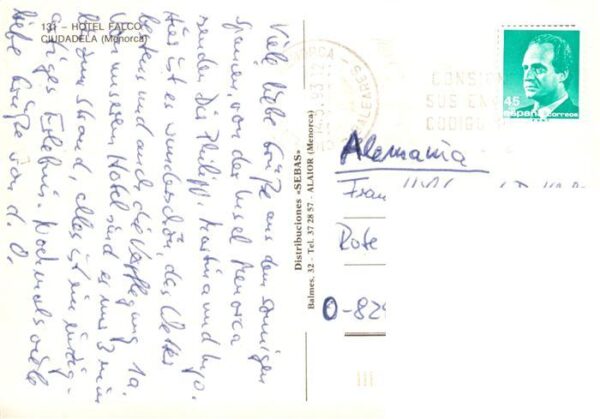 131 - HOTEL FALCO
CIUDADELA (Menorca)
Viele liebe Grüße aus dem sonnigen
Spanien, von der Insel Menorca
senden Dir Philipp, Martina und Ingo.
Hier ist es wunderschön, das Wetter
bestens und auch die Verpflegung 1a.
Von unserem Hotel sind es nur 3 min
zum Strand, alles ist ein einzig-
artiges Erlebnis. Nochmals viele
liebe Grüße von d. O.
Distribuciones «SEBAS»
Balmes, 32 - Tel. 37 28 57 - ALAIOR (Menorca)
CONSIGNE
SUS EN
CODIGO
45
españa correos
Alemania
Frau
Rote
O-829